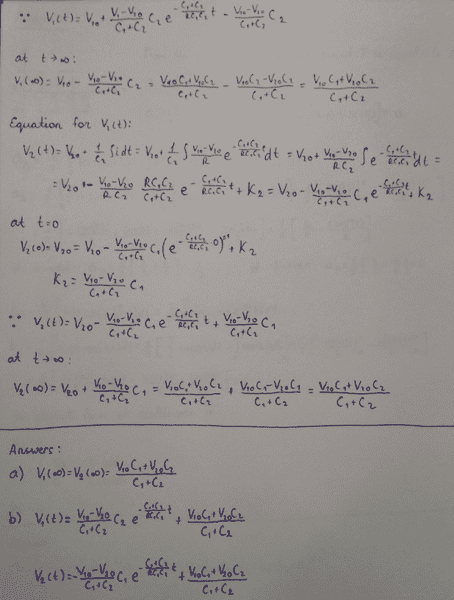 ∵ V₁(t) = V₁₀ + (V₁-V₂₀)/(C₁+C₂) C₂ e^(-(C₁+C₂)/(RC₁C₂) t) - (V₁₀-V₂₀)/(C₁+C₂) C₂
at t→∞:
V₁(∞) = V₁₀ - (V₁₀-V₂₀)/(C₁+C₂) C₂ = (V₁₀C₁+V₁₀C₂)/(C₁+C₂) - (V₁₀C₂-V₂₀C₂)/(C₁+C₂) = (V₁₀C₁+V₂₀C₂)/(C₁+C₂)
Equation for V₂(t):
V₂(t) = V₂₀ + 1/C₂ ∫idt = V₂₀ + 1/C₂ ∫ (V₁₀-V₂₀)/R e^(-(C₁+C₂)/(RC₁C₂) t) dt = V₂₀ + (V₁₀-V₂₀)/(RC₂) ∫ e^(-(C₁+C₂)/(RC₁C₂) t) dt =
= V₂₀ - (V₁₀-V₂₀)/(RC₂) (RC₁C₂)/(C₁+C₂) e^(-(C₁+C₂)/(RC₁C₂) t) + K₂ = V₂₀ - (V₁₀-V₂₀)/(C₁+C₂) C₁ e^(-(C₁+C₂)/(RC₁C₂) t) + K₂
at t=0
V₂(0) = V₂₀ = V₂₀ - (V₁₀-V₂₀)/(C₁+C₂) C₁ (e^(-(C₁+C₂)/(RC₁C₂)·0)) + K₂
K₂ = (V₁₀-V₂₀)/(C₁+C₂) C₁
∵ V₂(t) = V₂₀ - (V₁₀-V₂₀)/(C₁+C₂) C₁ e^(-(C₁+C₂)/(RC₁C₂) t) + (V₁₀-V₂₀)/(C₁+C₂) C₁
at t→∞:
V₂(∞) = V₂₀ + (V₁₀-V₂₀)/(C₁+C₂) C₁ = (V₂₀C₁+V₂₀C₂)/(C₁+C₂) + (V₁₀C₁-V₂₀C₁)/(C₁+C₂) = (V₁₀C₁+V₂₀C₂)/(C₁+C₂)
Answers:
a) V₁(∞) = V₂(∞) = (V₁₀C₁+V₂₀C₂)/(C₁+C₂)
b) V₁(t) = (V₁₀-V₂₀)/(C₁+C₂) C₂ e^(-(C₁+C₂)/(RC₁C₂) t) + (V₁₀C₁+V₂₀C₂)/(C₁+C₂)
V₂(t) = -(V₁₀-V₂₀)/(C₁+C₂) C₁ e^(-(C₁+C₂)/(RC₁C₂) t) + (V₁₀C₁+V₂₀C₂)/(C₁+C₂)